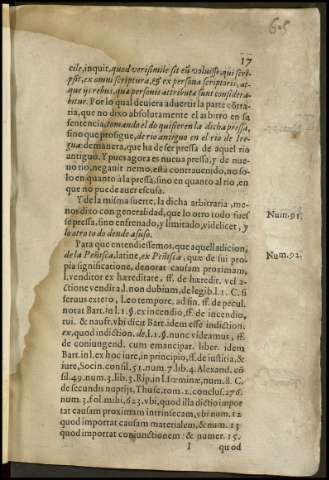 17
cile, inquit, quod verisimile sit eũ voluisse, qui scri-
psit, ex omni scriptura, & ex persona scriptoris, at-
que ijs rebus, quæ personis attributæ sunt considera-
bitur. Por lo qual deuiera aduertir la parte cõtra-
ria, que no dixo absolutamente el arbitro en su
sentencia, tomando el do quisieren la dicha pressa,
sino que prosigue, de rio antiguo en el rio de
de manera, que ha de ser pressa de aquel rio
antiguo. Y pues agora es nueua pressa, y de nue-
uo rio, negauit nemo, està contrauenido, no so-
lo en quanto à la pressa, sino en quanto al rio, en
que no puede auer escusa.
Y de la misma suerte, la dicha arbitraria, me-
nos dito con generalidad, que lo otro todo fues
se pressa, sino enfrenado, y limitado, videlicet, y
lo otro todo dende ayuso.
Num. 91.
Para que entendiessemos, que aquella dicion,
de la Peñisca, latine, ex Peñisca, quæ de sui pro-
pia significatione, denotat causam proximam,
l. venditor ex hæreditate, ff. de hæredit. vel ac-
tione vendita, l. non dubium, de legib. l. 1. C. si
seruus extero, l. eo tempore, ad fin. ff. de pecul.
notat Bart. in l. 1. §. ex incendio, ff. de incendio,
rui. & naufr. vbi dicit Bart. idem esse indiction.
ex, quod indiction. de, l. 1. §. nunc videamus, ff.
de coniungend. cum emancipat. liber. idem
Bart. in l. ex hoc iure, in principio, ff. de iustitia, &
iure, Socin. consil. 51. num. 7. lib. 4. Alexand. cõ
sil. 49. num. 3. lib. 3. Rip. in l. fœminæ, num. 8. C.
de secundis nuptijs, Thusc. tom. 2. conclus. 276.
num. 3. fol. mihi, 623. vbi, quod illa dictio impor
tat causam proximam intrinsecam, vbi num. 12
quod importat causam materialem, & num. 13
quod importat conjunctionem: & numer. 15.
Num. 92.
I quod